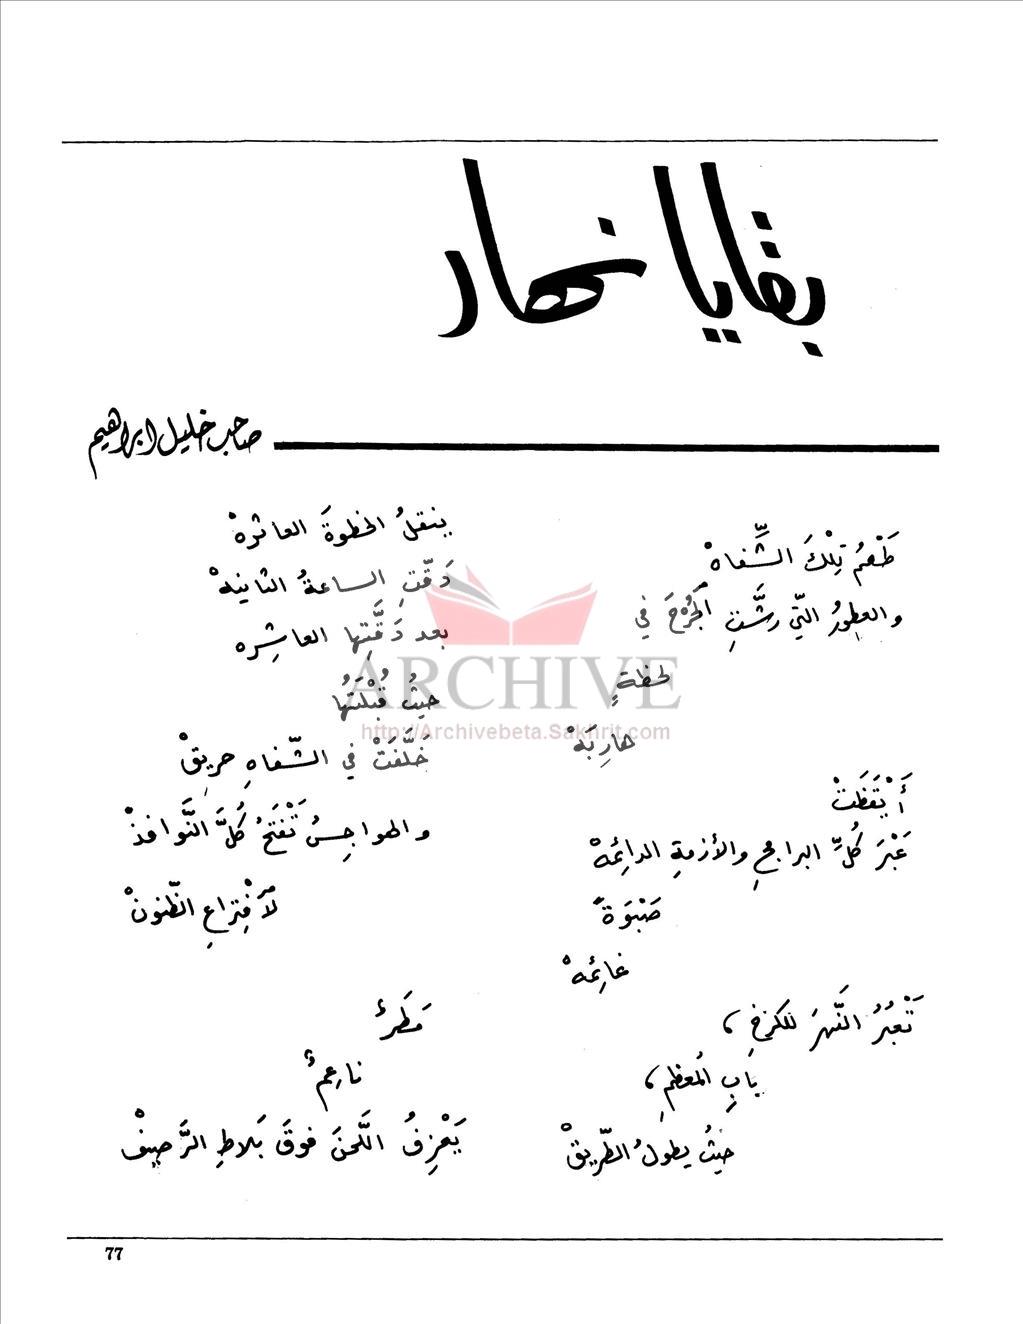 بقايا نهار
صاحب خليل ابراهيم
طَعْمُ تِلْكَ الشِّفاهْ
والعطورُ التّي رشَّتِ الجُرْحَ في
لحظةٍ
هاربَهْ
أَيْقَظَتْ
عَبْرَ كُلِّ البرامجِ والأزمةِ الدائِمهْ
صَبْوَةً
غائِمهْ
تَعْبُرُ النَّهرَ للكرخِ ،
بابِ المُعظمِ ،
حيثُ يطولُ الطّريقْ
ينقلُ الخطوةَ العاثرهْ
دَقّتِ الساعةُ الثانيهْ
بعد دَقَّتِها العاشِره
حيثُ قُبْلَتُها
خَلَّفَتْ في الشّفاهِ حريقْ
والهواجِسُ تَفْتَحُ كُلَّ النَّوافذْ
لاَفْتِراعِ الظّنونْ
مَطَرٌ
ناعِمٌ
يَعْزِفُ اللَّحنَ فوقَ بَلاطِ الرَّصيفْ
77
ARCHIVE
http://Archivebeta.Sakhrit.com